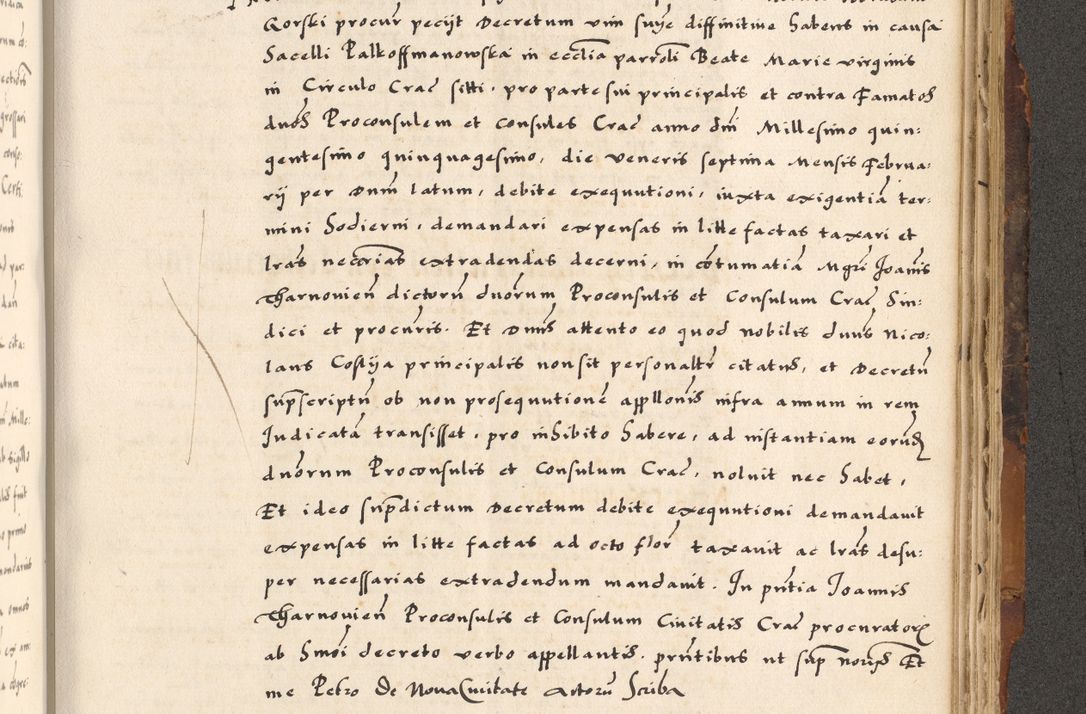 Gorski procur peciit Decretum vim suae diffinitive habens in causa
Sacelli Palkoffmanowska in ecclia parroli Beate Marie virginis
in Circulo Crac sitti, pro parte sui principalis et contra Famatos
duos Proconsulem et Consules Crac anno dni Millesimo quin:
gentesimo quinquagesimo, die veneris septima Mensis Februa:
rij per Dnm latum, debite exequutioni, iuxta exigentia ter:
mini hodierni, demandari expensas in lite factas taxari et
lras necrias extradendas decerni, in cotumatia Mgri Joanis
Tharnovien dictoru duorum Proconsulis et Consulum Crac Sin:
dici et procuris. Et Dnus attento eo quod nobilis dnus Nico:
laus Costija principalis non sit personaltr citatus, et Decretu
supscriptu ob non prosequutione appllonis infra annum in rem
Judicata transisset, pro inhibito habere, ad instantiam eorud
duorum Proconsulis et Consulum Crac, noluit nec habet,
Et ideo supdictum Decretum debite exequutioni demandavit
expensas in lite factas ad octo flor taxavit ac lras desu:
per necessarias extradendum mandavit. In pntia Joannis
Tharnovien Proconsulis et Consulum Civitatis Crac procurator
ab hmoi decreto verbo appellantis. pntibus ut sup Et
me Petro de Nova Civitate Actoru Scriba